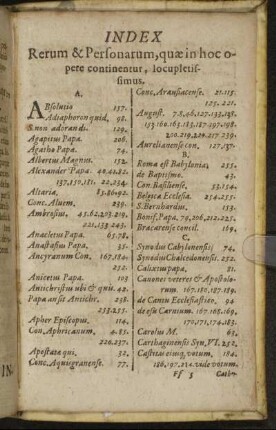 INDEX
Rerum & Personarum, quæ in hoc o-
pere continentur, locupletis-
simus.
A.
ABsolutio 137.
Adiaphoron quid, 98.
S. non adorandi. 129.
Agapitus Papa. 206.
Agatho Papa. 74.
Albertus Magnus. 152.
Alexander Papa. 40.41.82.
137.150.181. 22.234.
Altaria, 85.86.92.
Conc. Aluem. 239.
Ambrosius, 45.62.203.219.
221.153.243.
Anacletus Papa. 65.78.
Anastasius Papa. 35.
Ancyranum Con. 167.184.
252.
Anicetus Papa. 103
Antichristus ubi & quis. 42.
Papa an sit Antichr. 258.
255.251.
Apher Episcopus. 114.
Con. Aphricanum. 4.85.
220.237.
Apostatæ qui, 32.
Conc. Aquisgranense. 77.
Conc. Arausiacense. 21.115.
125.221.
August. 7.8.96.127.133.138.
153.160.163.183.187.197.198.
200.219.224.217.239.
Aurelianense con. 127.137.
B.
Roma est Babylonia, 255.
de Baptismo. 43.
Con. Basiliense, 53.154.
Belgica Ecclesia. 254.255.
S. Bernhardus. 133.
Bonif. Papa. 70.206.212.225.
Bracarense concil. 169.
C.
Synodus Cabylonensis, 74.
Synodus Chalcedonensis. 252.
Calixtus papa. 81.
Canones veteres & Apostolo-
rum. 167.180.187.189.
de Cantu Ecclesiastico. 94
de esu Carnium. 167.168.169.
170.171.174.183.
Carolus M. 65.
Carthaginensis Syn. VI. 252.
Castitas eiusq; votum, 184.
186.197.214. vide votum.
Ff 5